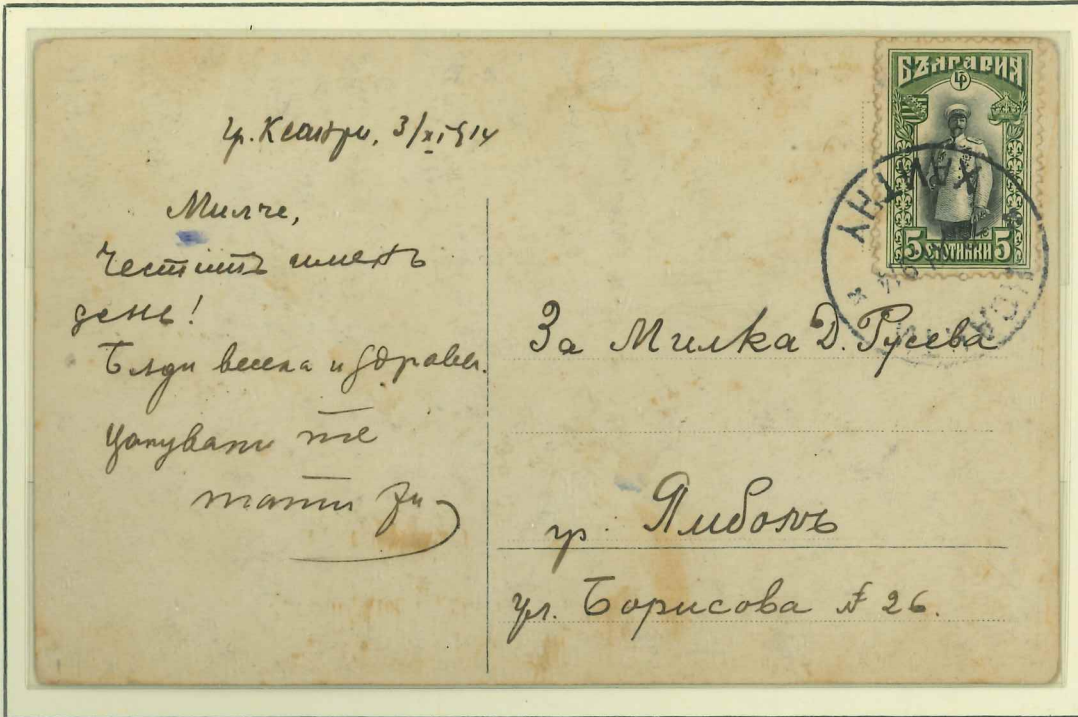 гр. Ксанти, 3/XI 1914
Милче,
Честитъ именъ
день!
Бѫди весела и здрава.
Цалувамъ те
татй ти
БЪЛГАРИЯ
5 СТОТИНКИ 5
КСАНТИ
За Милка Д. Русева
гр. Ямболъ
ул. Борисова № 26.